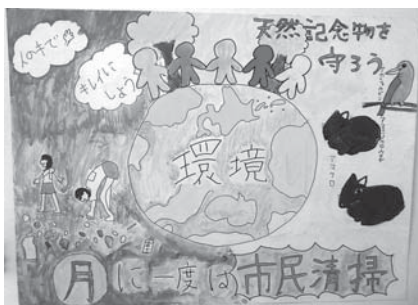 人の手で
キレイに
しよう
天然記念物を
守ろう
環境
月に一度は市民清掃